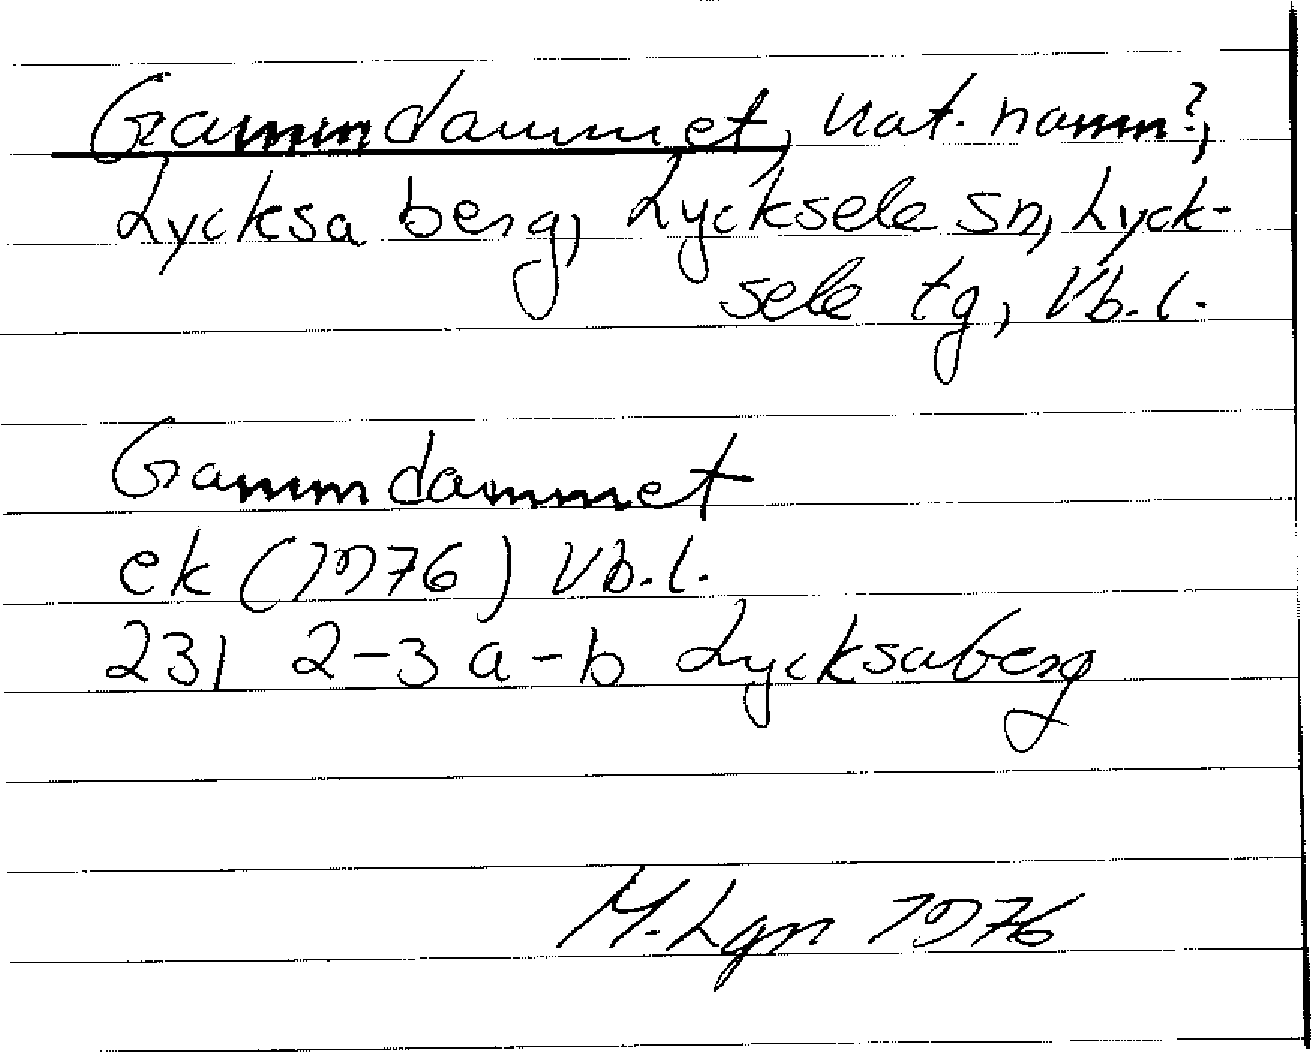 Gammdammet, nat. namn?,
Lycksaberg, Lycksele sn, Lyck-
sele tg, Vb.l.
Gammdammet
ek (1976) Vb.l.
231 2-3 a-b Lycksaberg
M. Lgn 1976